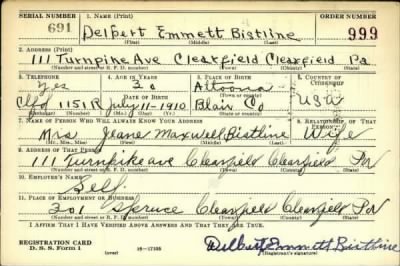 SERIAL NUMBER 1. NAME (Print) ORDER NUMBER
691 Delbert Emmett Bistline 999
(First) (Middle) (Last)
2. ADDRESS (Print)
111 Turnpike Ave Clearfield Clearfield Pa
(Number and street or R. F. D. number) (Town) (County) (State)
3. TELEPHONE 4. AGE IN YEARS 5. PLACE OF BIRTH 6. COUNTRY OF CITIZENSHIP
Yes 30 Altoona
DATE OF BIRTH (Town or county)
Clfd 1151R July-11-1910 Blair Co USA
(Exchange) (Number) (Mo.) (Day) (Yr.) (State or country)
7. NAME OF PERSON WHO WILL ALWAYS KNOW YOUR ADDRESS 8. RELATIONSHIP OF THAT PERSON
Mrs Jeane Maxwell Bistline Wife
(Mr., Mrs., Miss) (First) (Middle) (Last)
9. ADDRESS OF THAT PERSON
111 Turnpike ave Clearfield Clearfield Pa
(Number and street or R. F. D. number) (Town) (County) (State)
10. EMPLOYER'S NAME
Self.
11. PLACE OF EMPLOYMENT OR BUSINESS
301 Spruce Clearfield Clearfield Pa
(Number and street or R. F. D. number) (Town) (County) (State)
I AFFIRM THAT I HAVE VERIFIED ABOVE ANSWERS AND THAT THEY ARE TRUE.
REGISTRATION CARD
D. S. S. Form 1 (over) 16-17105 Delbert Emmett Bistline
(Registrant's signature)